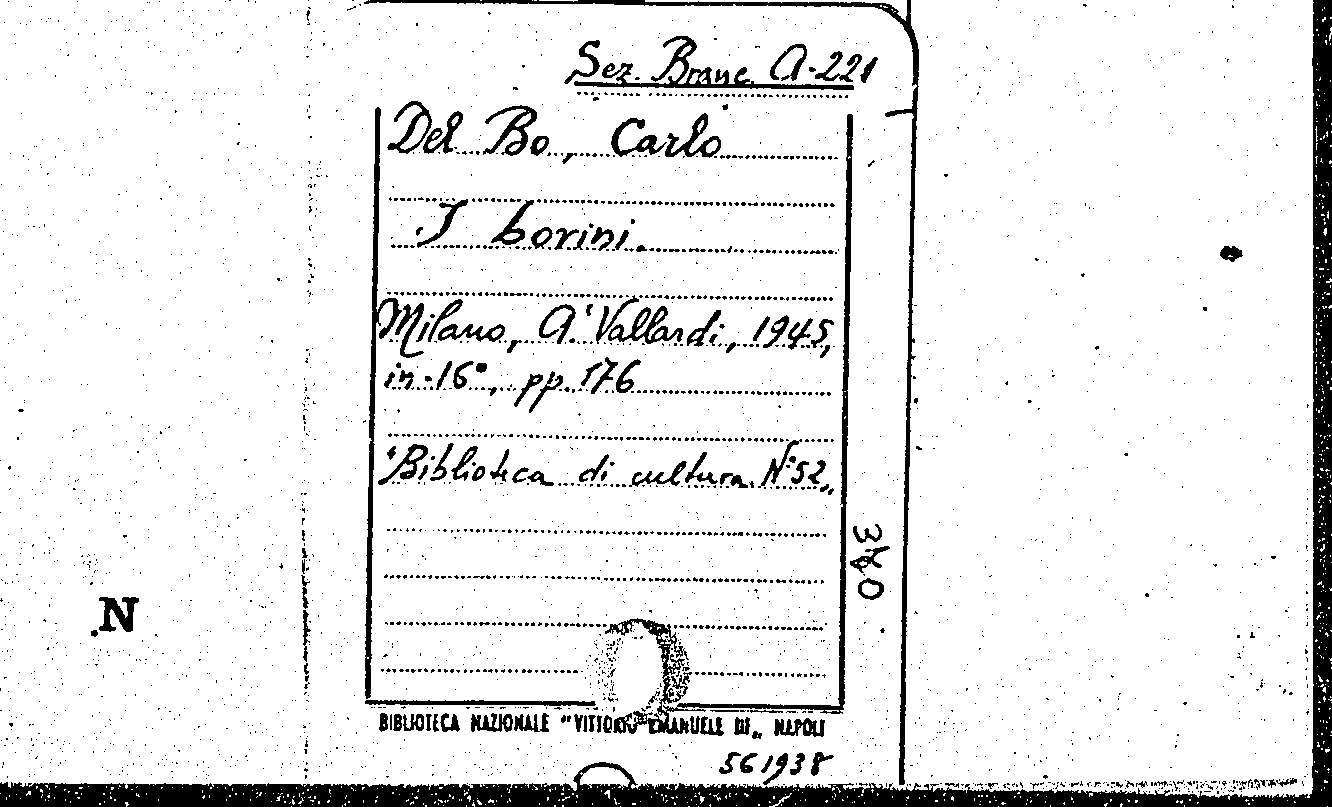 Sez. Branc. A-221
Del Bo, Carlo
I borini.
Milano, A. Vallardi, 1945,
in-16°, pp. 176
"Biblioteca di cultura N° 52"
340
N
BIBLIOTECA NAZIONALE "VITTORIO EMANUELE III" NAPOLI
561938